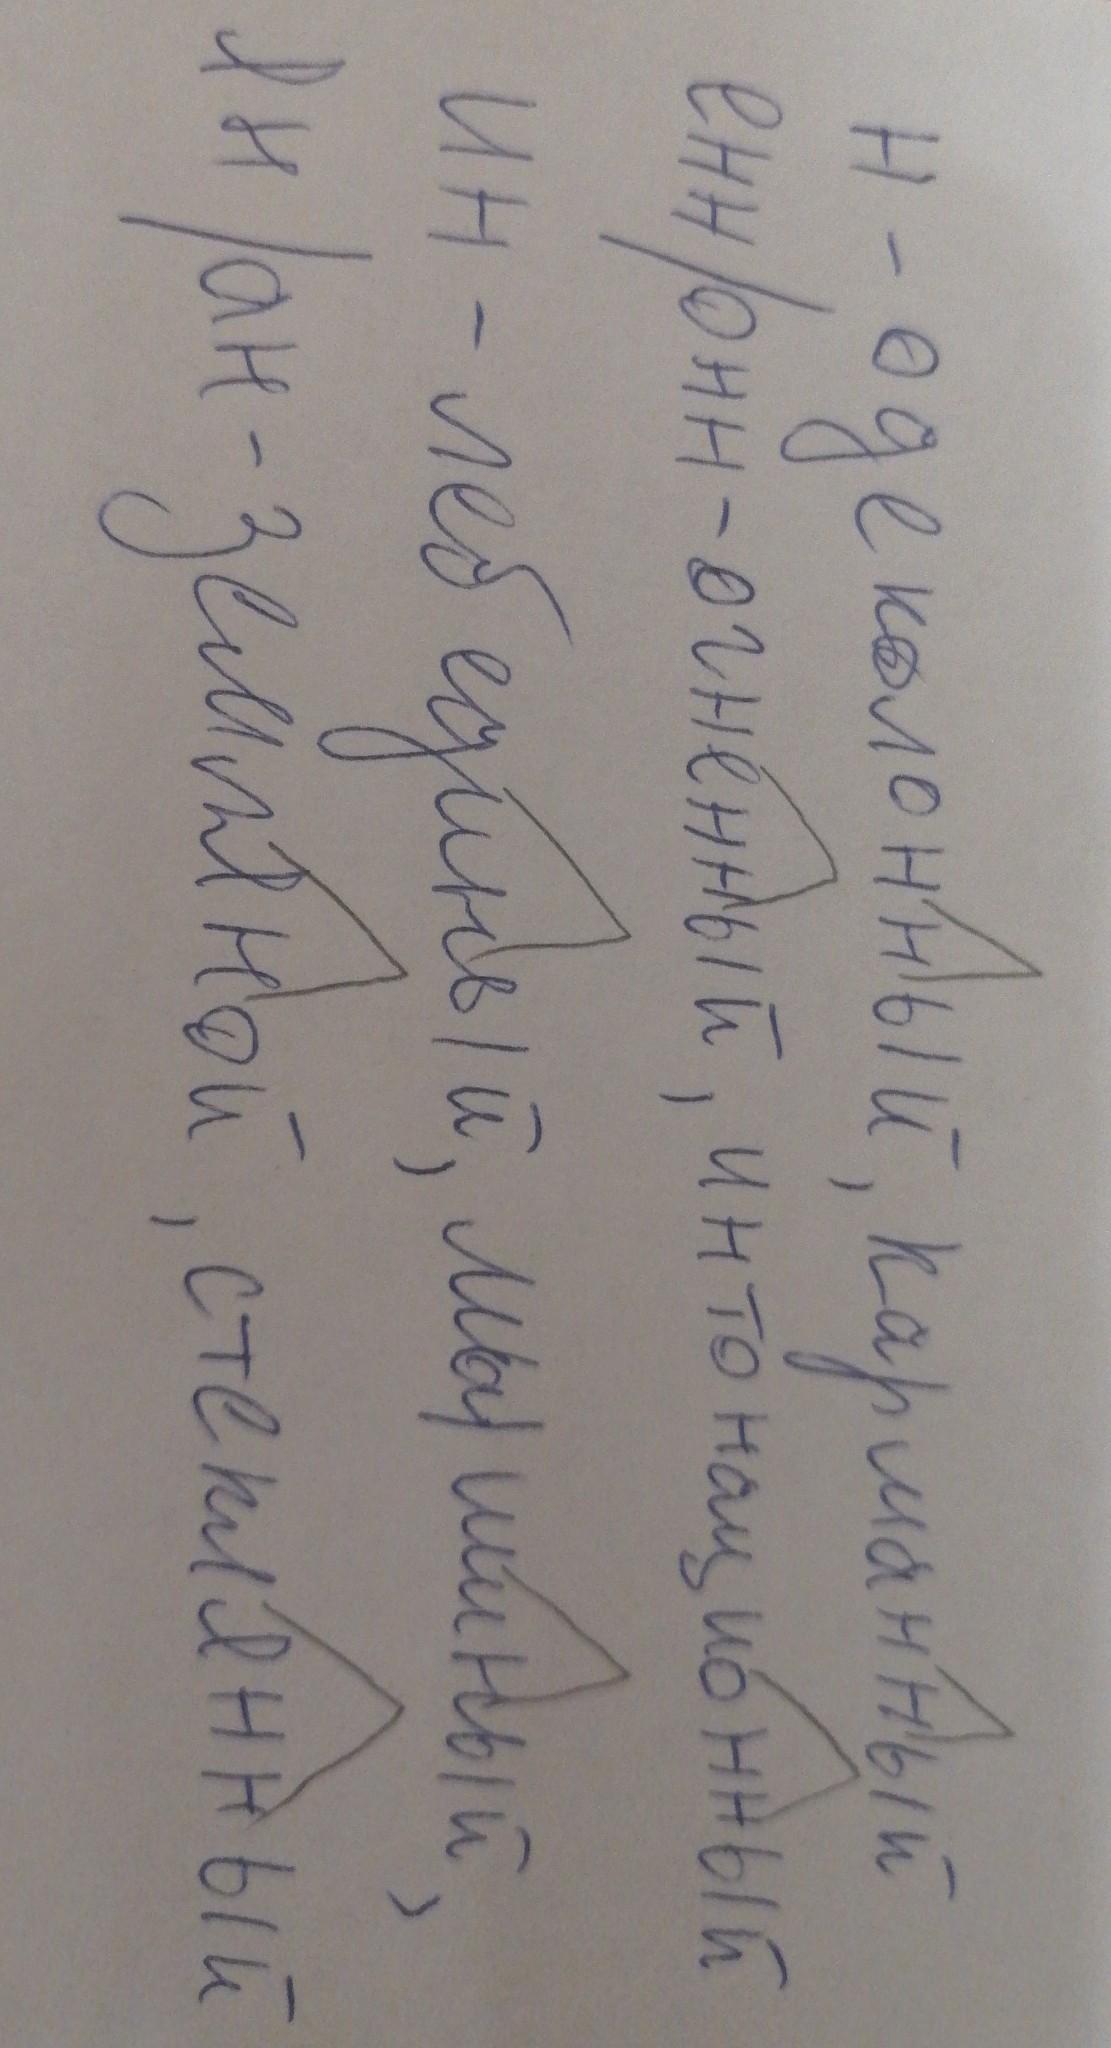 н - одеколонный, карманный
енн/онн - огненный, интонационный
ин - лебединый, мышиный,
ян/ан - земляной, стеклянный